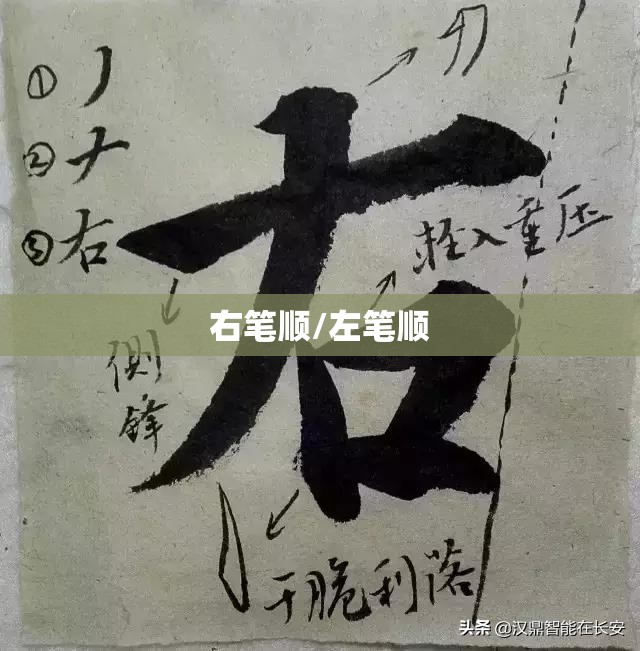 ① 丿
② ナ
③ 右
右
轻入重压
右笔顺/左笔顺
侧锋
干脆利落
头条 @汉鼎智能在长安